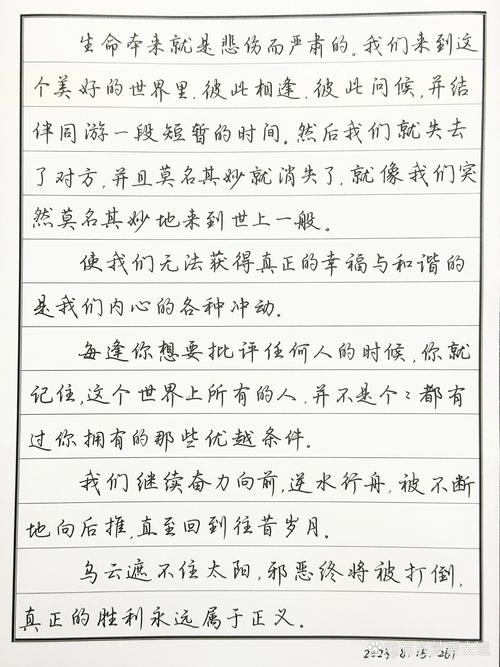 生命本来就是悲伤而严肃的。我们来到这
个美好的世界里,彼此相逢,彼此问候,并结
伴同游一段短暂的时间。然后我们就失去
了对方,并且莫名其妙就消失了,就像我们突
然莫名其妙地来到世上一般。
使我们无法获得真正的幸福与和谐的
是我们内心的各种冲动。
每逢你想要批评任何人的时候,你就
记住,这个世界上所有的人,并不是个々都有
过你拥有的那些优越条件。
我们继续奋力向前,逆水行舟,被不断
地向后推,直至回到往昔岁月。
乌云遮不住太阳,邪恶终将被打倒,
真正的胜利永远属于正义。